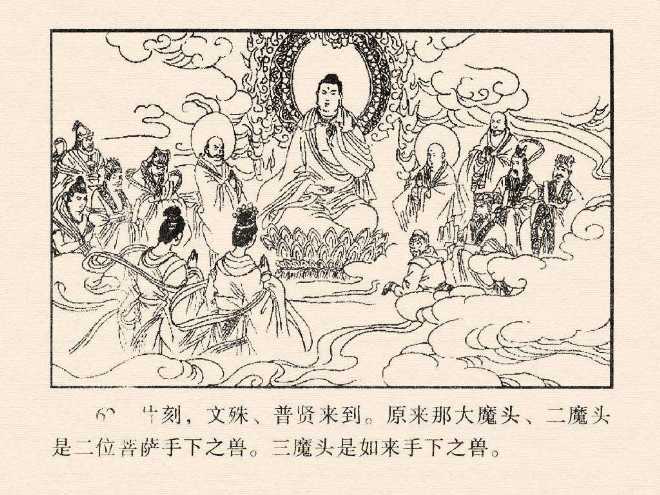 6 刻，文殊、普贤来到。原来那大魔头、二魔头
是二位菩萨手下之兽。三魔头是如来手下之兽。